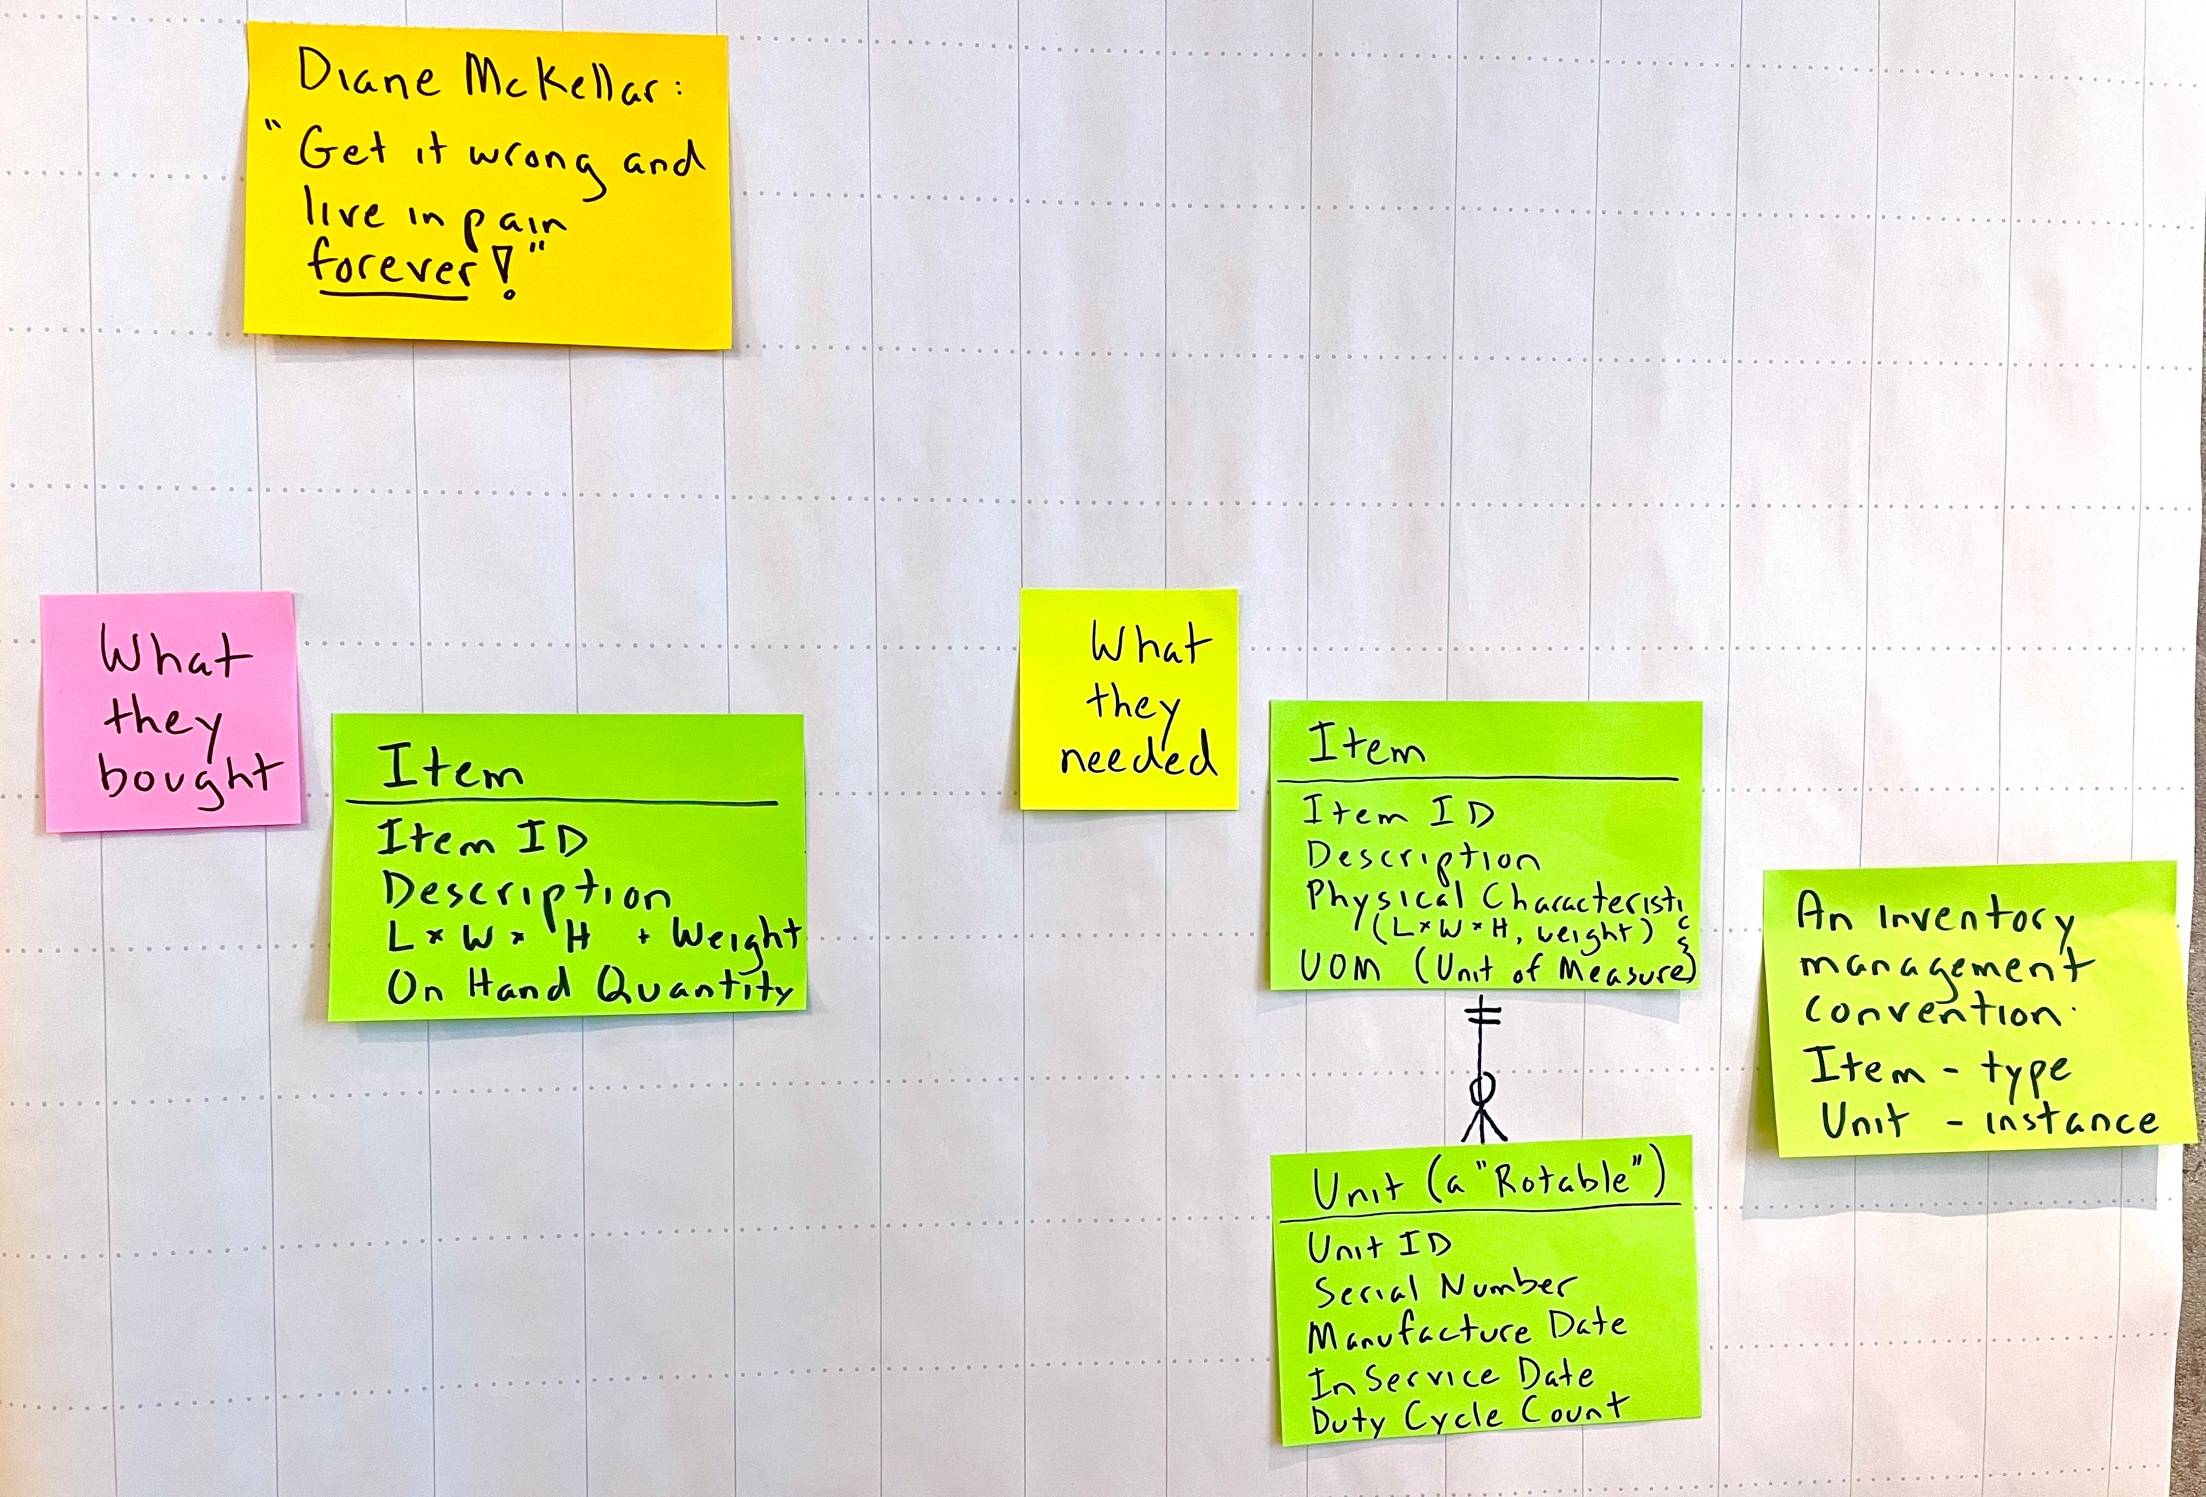 Diane McKellar:
"Get it wrong and
live in pain
forever!"
What
they
bought
Item
Item ID
Description
L × W × H + Weight
On Hand Quantity
What
they
needed
Item
Item ID
Description
Physical Characteristics
(L×W×H, weight)
UOM (Unit of Measure)
Unit (a "Rotable")
Unit ID
Serial Number
Manufacture Date
In Service Date
Duty Cycle Count
An inventory
management
convention:
Item - type
Unit - instance